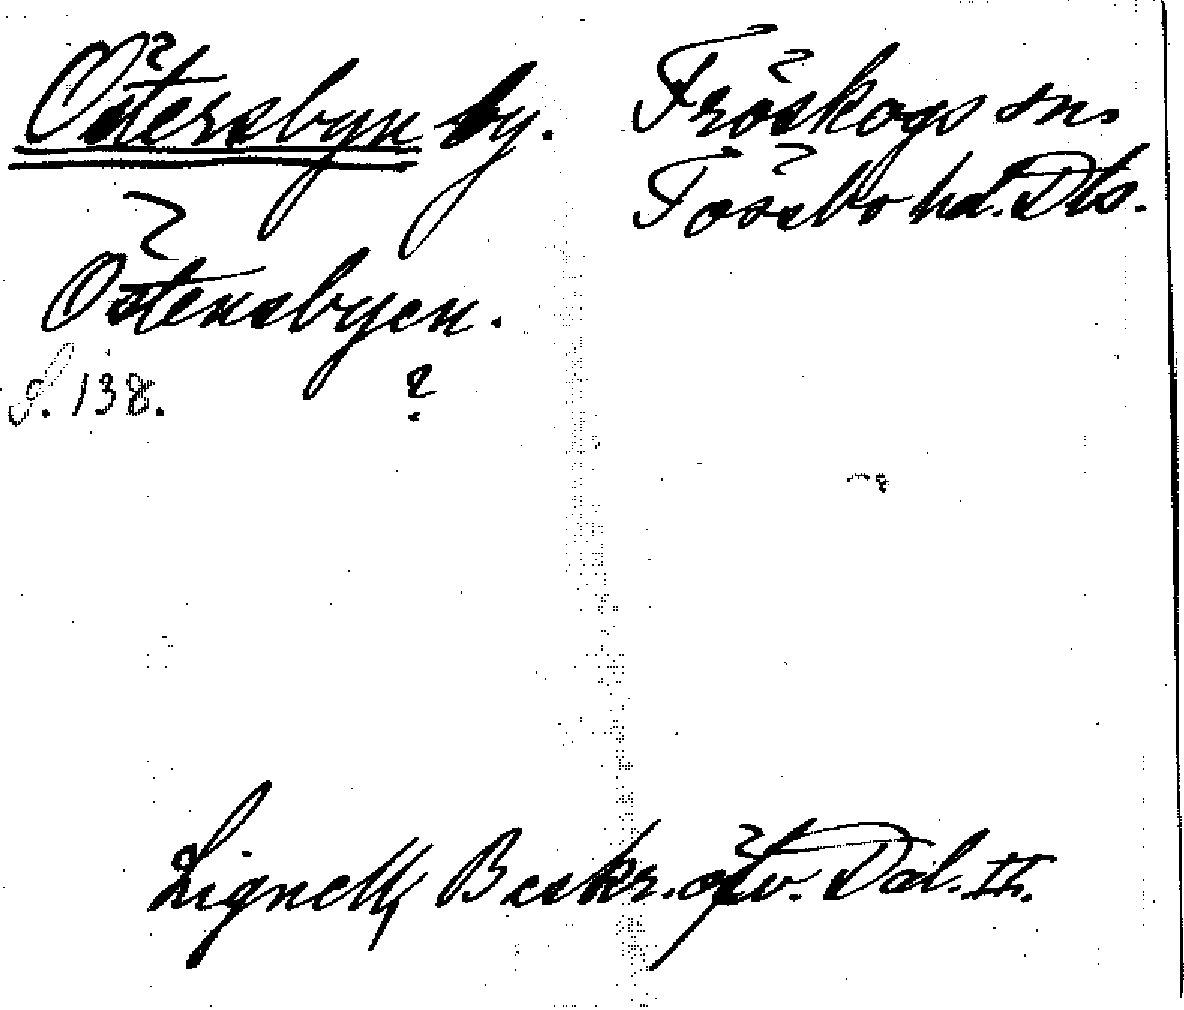 Östersbyn by. Fröskogs sn.
Tössbo hd. Dls.
Östensbyen.
S. 138. ?
Lignell, Beskr. öfv. Dal. II.